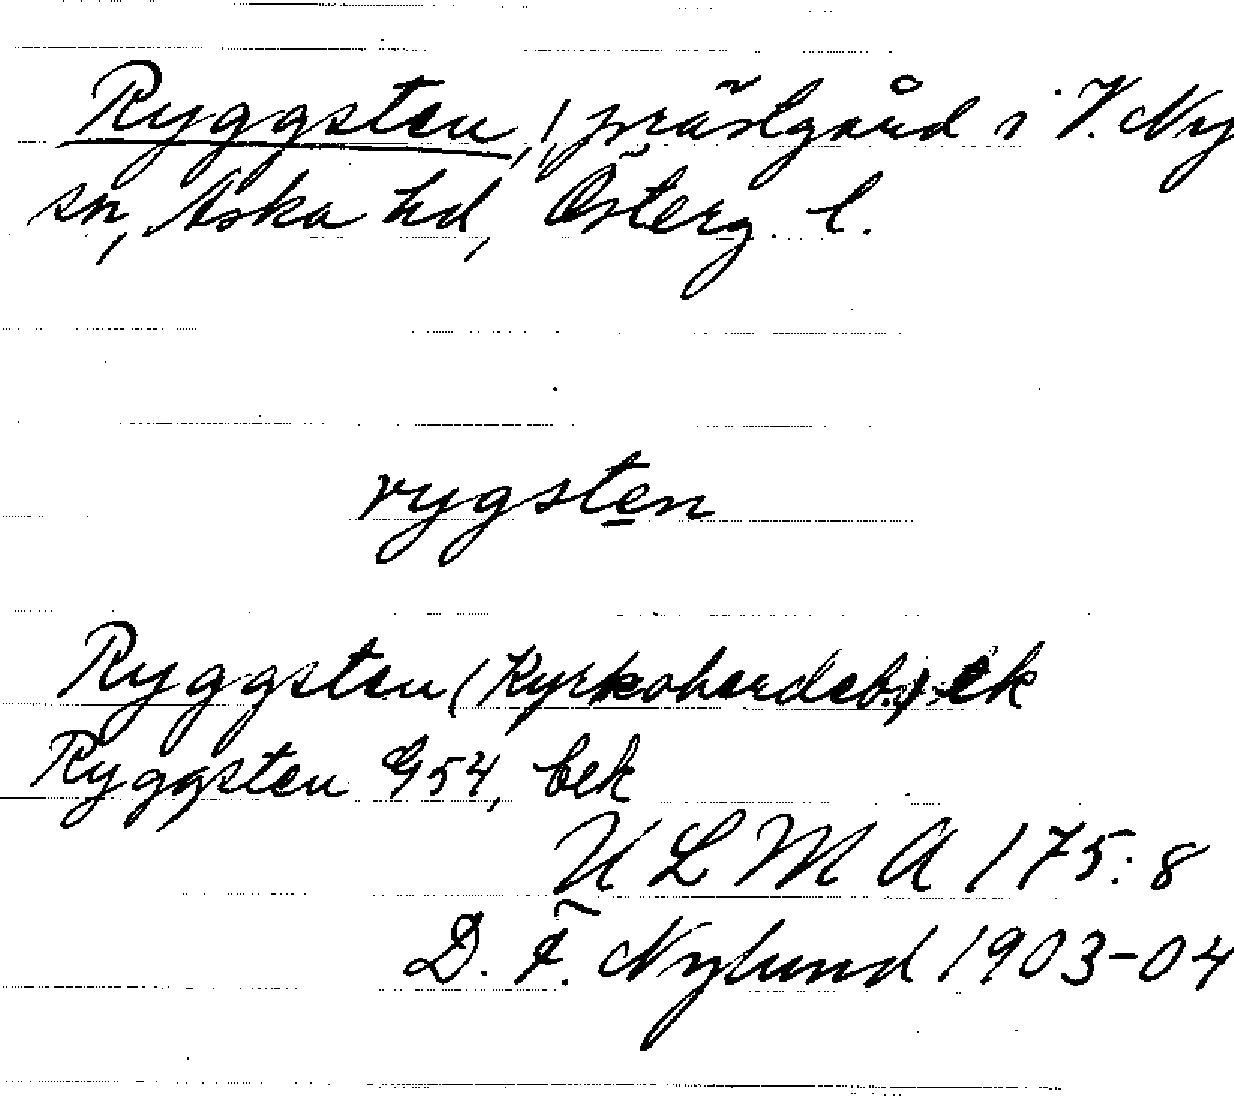 Ryggsten, / prästgård i V. Ny
sn, Aska hd, Österg. l.
rygsten
Ryggsten (Kyrkoherdeb.) ek
Ryggsten G54, bek
ULMA 175:8
D. F. Nylund 1903-04